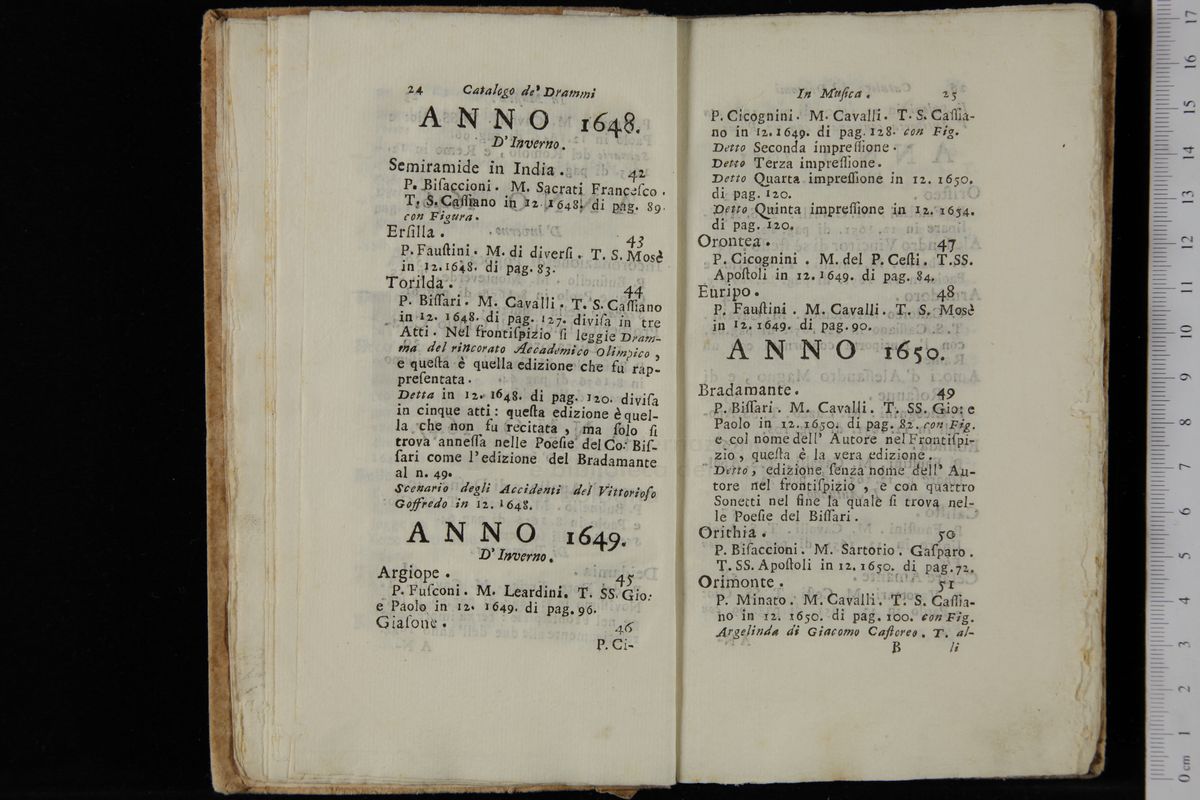 24 Catalogo de' Drammi
ANNO 1648.
D'Inverno.
Semiramide in India. 42
P. Biſaccioni. M. Sacrati Franceſco.
T. S. Caſſiano in 12 1648. di pag. 89.
con Figura.
Erſilla. 43
P. Fauſtini. M. di diverſi. T. S. Mosè
in 12. 1648. di pag. 83.
Torilda. 44
P. Biſſari. M. Cavalli. T. S. Caſſiano
in 12. 1648. di pag. 127. diviſa in tre
Atti. Nel frontiſpizio ſi leggie Dram-
ma del rincorato Accademico Olimpico,
e queſta è quella edizione che fu rap-
preſentata.
Detta in 12. 1648. di pag. 120. diviſa
in cinque atti: queſta edizione è quel-
la che non fu recitata, ma ſolo ſi
trova anneſſa nelle Poeſie del Co: Biſ-
ſari come l'edizione del Bradamante
al n. 49.
Scenario degli Accidenti del Vittorioſo
Goffredo in 12. 1648.
ANNO 1649.
D'Inverno.
Argiope. 45
P. Fuſconi. M. Leardini. T. SS. Gio:
e Paolo in 12. 1649. di pag. 96.
Giaſone. 46
P. Ci-
In Muſica. 25
P. Cicognini. M. Cavalli. T. S. Caſſia-
no in 12. 1649. di pag. 128. con Fig.
Detto Seconda impreſſione.
Detto Terza impreſſione.
Detto Quarta impreſſione in 12. 1650.
di pag. 120.
Detto Quinta impreſſione in 12. 1654.
di pag. 120.
Orontea. 47
P. Cicognini. M. del P. Ceſti. T. SS.
Apoſtoli in 12. 1649. di pag. 84.
Euripo. 48
P. Fauſtini. M. Cavalli. T. S. Mosè
in 12. 1649. di pag. 90.
ANNO 1650.
Bradamante. 49
P. Biſſari. M. Cavalli. T. SS. Gio: e
Paolo in 12. 1650. di pag. 82. con Fig.
e col nome dell' Autore nel Frontiſpi-
zio, queſta è la vera edizione.
Detto, edizione ſenza nome dell' Au-
tore nel frontiſpizio, e con quattro
Sonetti nel fine la quale ſi trova nel-
le Poeſie del Biſſari.
Orithia. 50
P. Biſaccioni. M. Sartorio. Gaſparo.
T. SS. Apoſtoli in 12. 1650. di pag. 72.
Orimonte. 51
P. Minato. M. Cavalli. T. S. Caſſia-
no in 12. 1650. di pag. 100. con Fig.
Argelinda di Giacomo Caſtoreo. T. al-
B li
0 cm 1 2 3 4 5 6 7 8 9 10 11 12 13 14 15 16 17